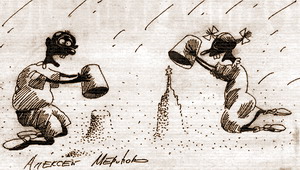 Алексей Меринов